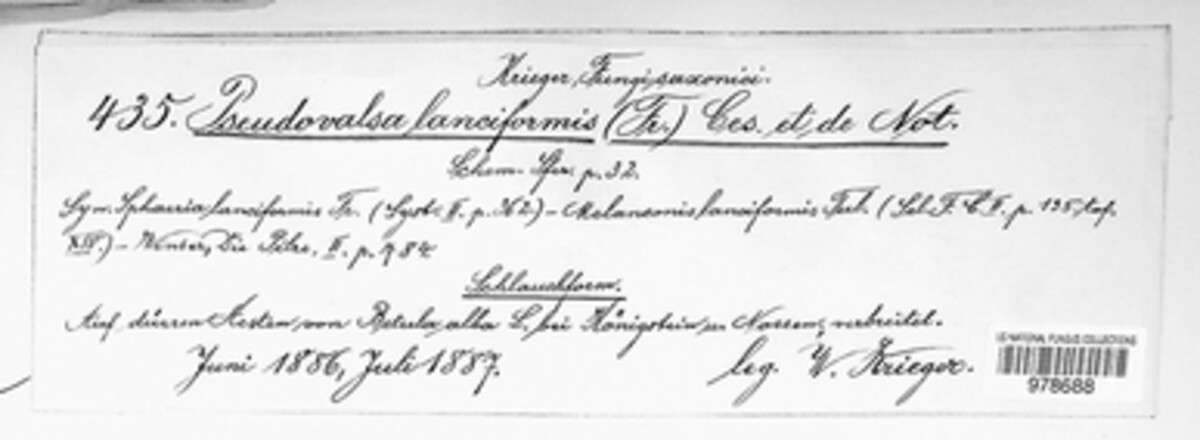 Krieger, Fungi saxonici.
435. Pseudovalsa lanciformis (Fr.) Ces. et de Not.
Schem. Sfer. p. 32.
Syn. Sphaeria lanciformis Fr. (Syst. II. p. 362) – Melanconis lanciformis Tul. (Sel. F. C. II. p. 135, taf.
XIV.) – Winter, Die Pilze, II. p. 784
Schlauchform.
Auf dürren Aesten von Betula alba L. bei Königstein u. Nossen, verbreitet.
Juni 1886, Juli 1887.
leg. W. Krieger.
US NATIONAL FUNGUS COLLECTIONS
978688